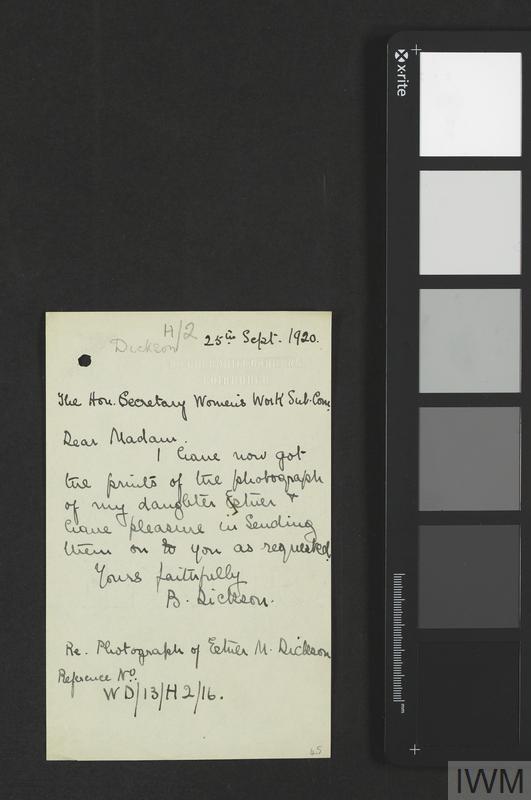 H/2
Dickson
25th Sept. 1920.
The Hon. Secretary Women's Work Sub-Com.
Dear Madam.
I have now got
the prints of the photograph
of my daughter Esther &
have pleasure in sending
them on to you as requested.
Yours faithfully
B. Dickson.
Re. Photograph of Esther M. Dickson
Reference No.
WD/13/H2/16.
45
x-rite
mm
IWM